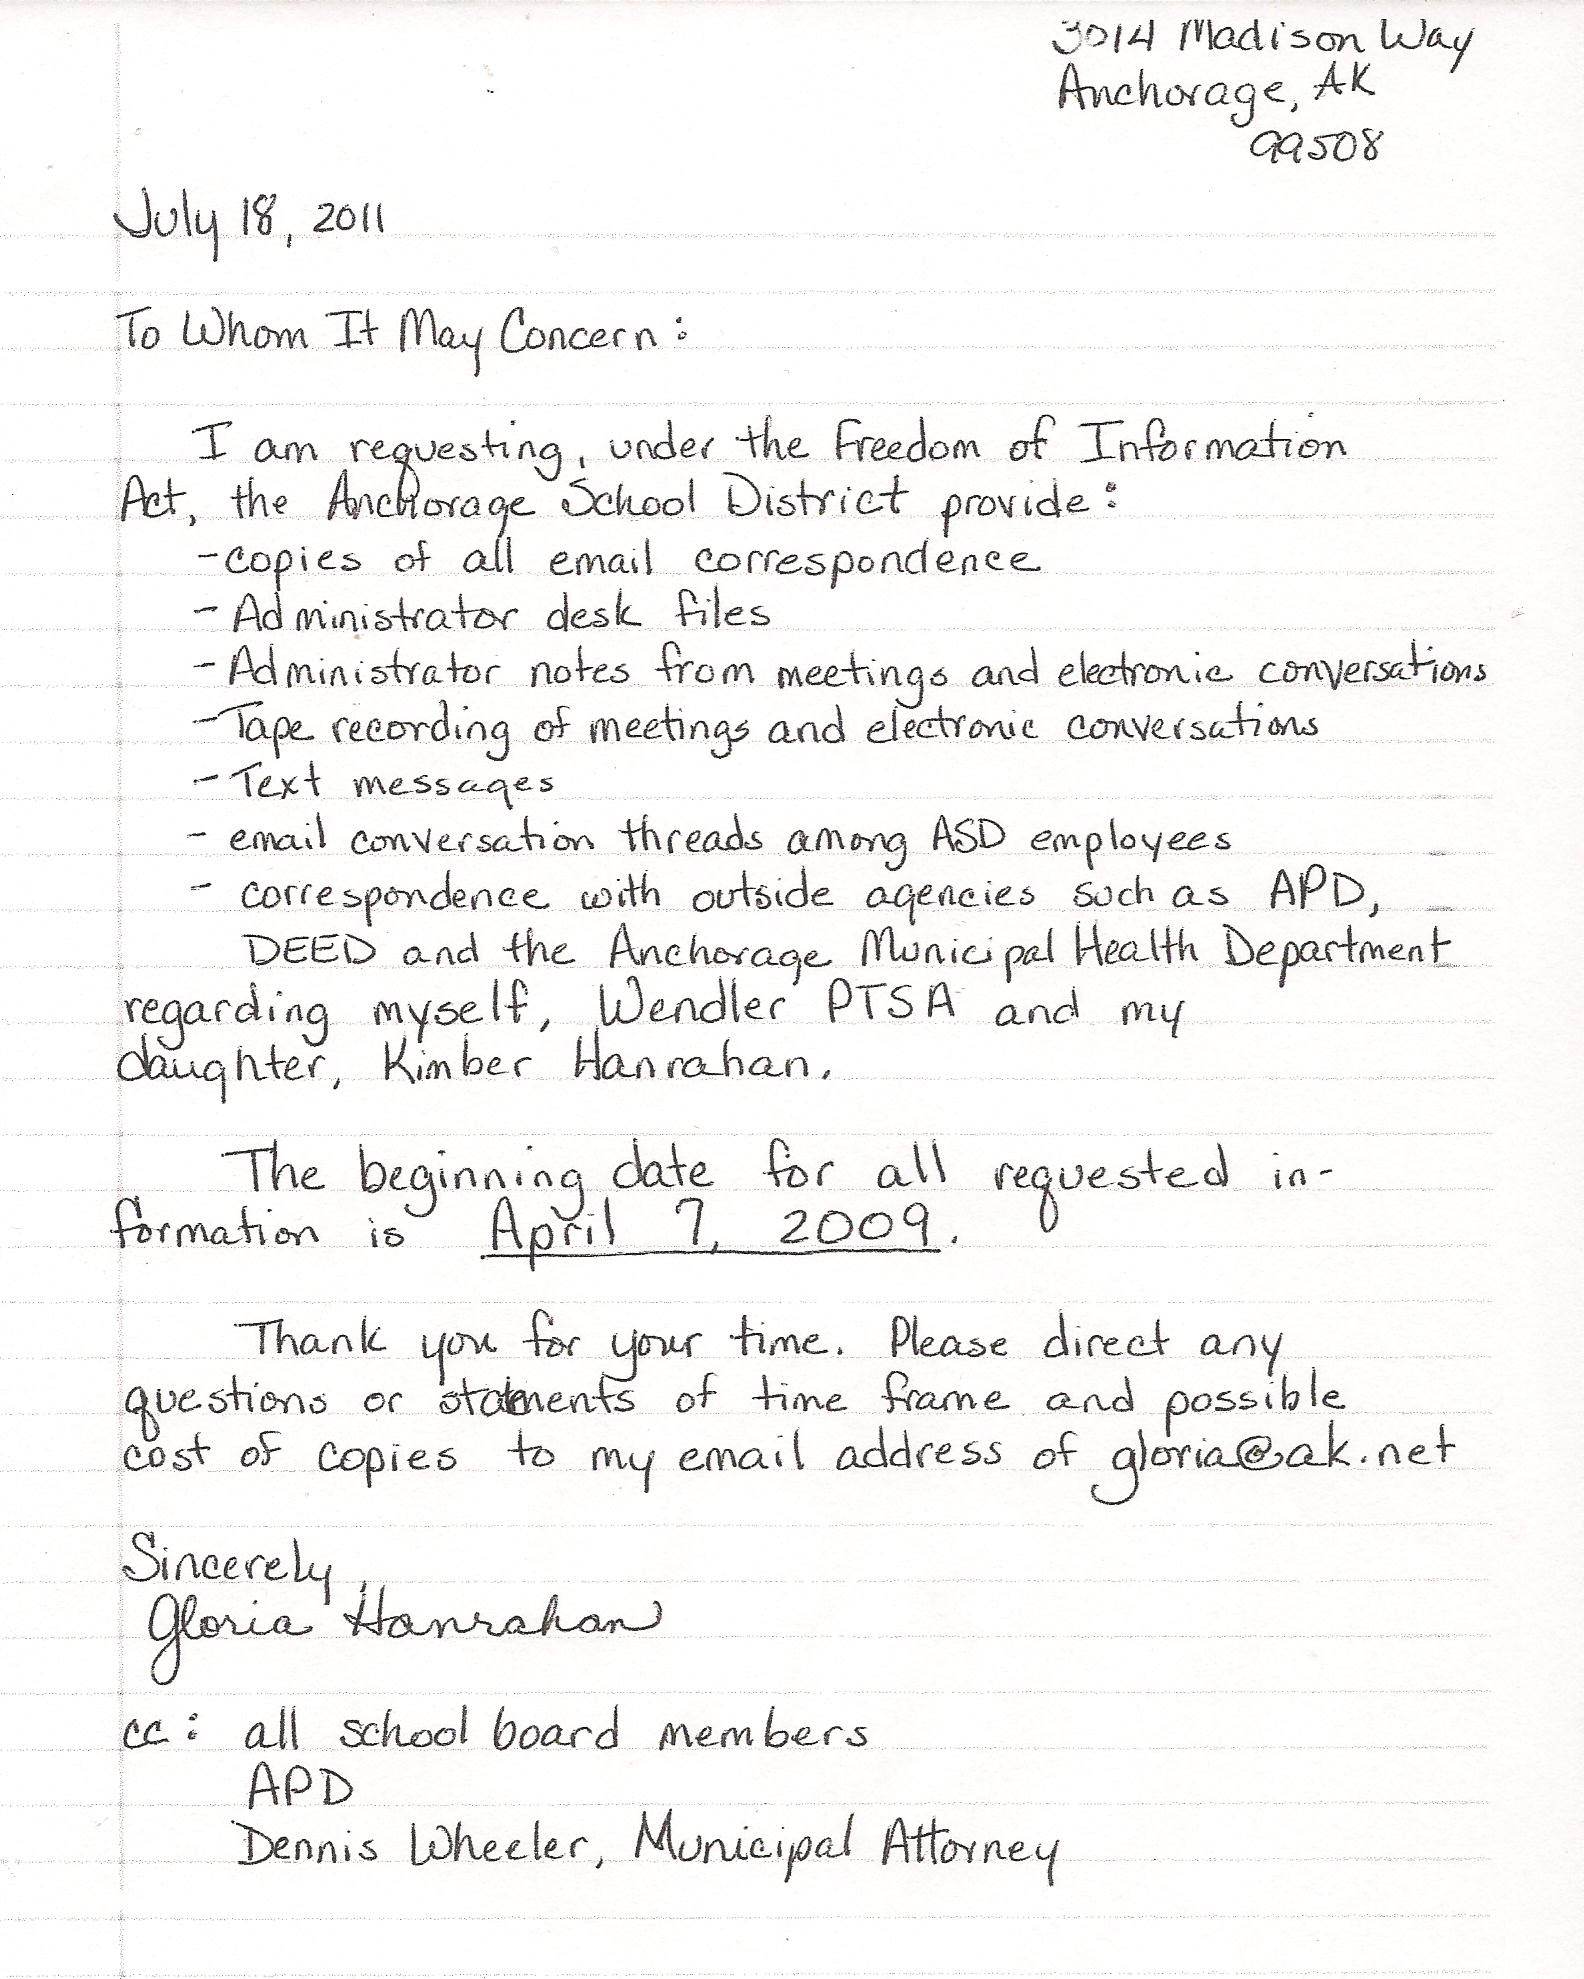 3014 Madison Way
Anchorage, AK
99508
July 18, 2011
To Whom It May Concern:
I am requesting, under the Freedom of Information
Act, the Anchorage School District provide:
- copies of all email correspondence
- Administrator desk files
- Administrator notes from meetings and electronic conversations
- Tape recording of meetings and electronic conversations
- Text messages
- email conversation threads among ASD employees
- correspondence with outside agencies such as APD,
DEED and the Anchorage Municipal Health Department
regarding myself, Wendler PTSA and my
daughter, Kimber Hanrahan.
The beginning date for all requested in-
formation is April 7, 2009.
Thank you for your time. Please direct any
questions or statements of time frame and possible
cost of copies to my email address of gloria@ak.net
Sincerely,
Gloria Hanrahan
cc: all school board members
APD
Dennis Wheeler, Municipal Attorney